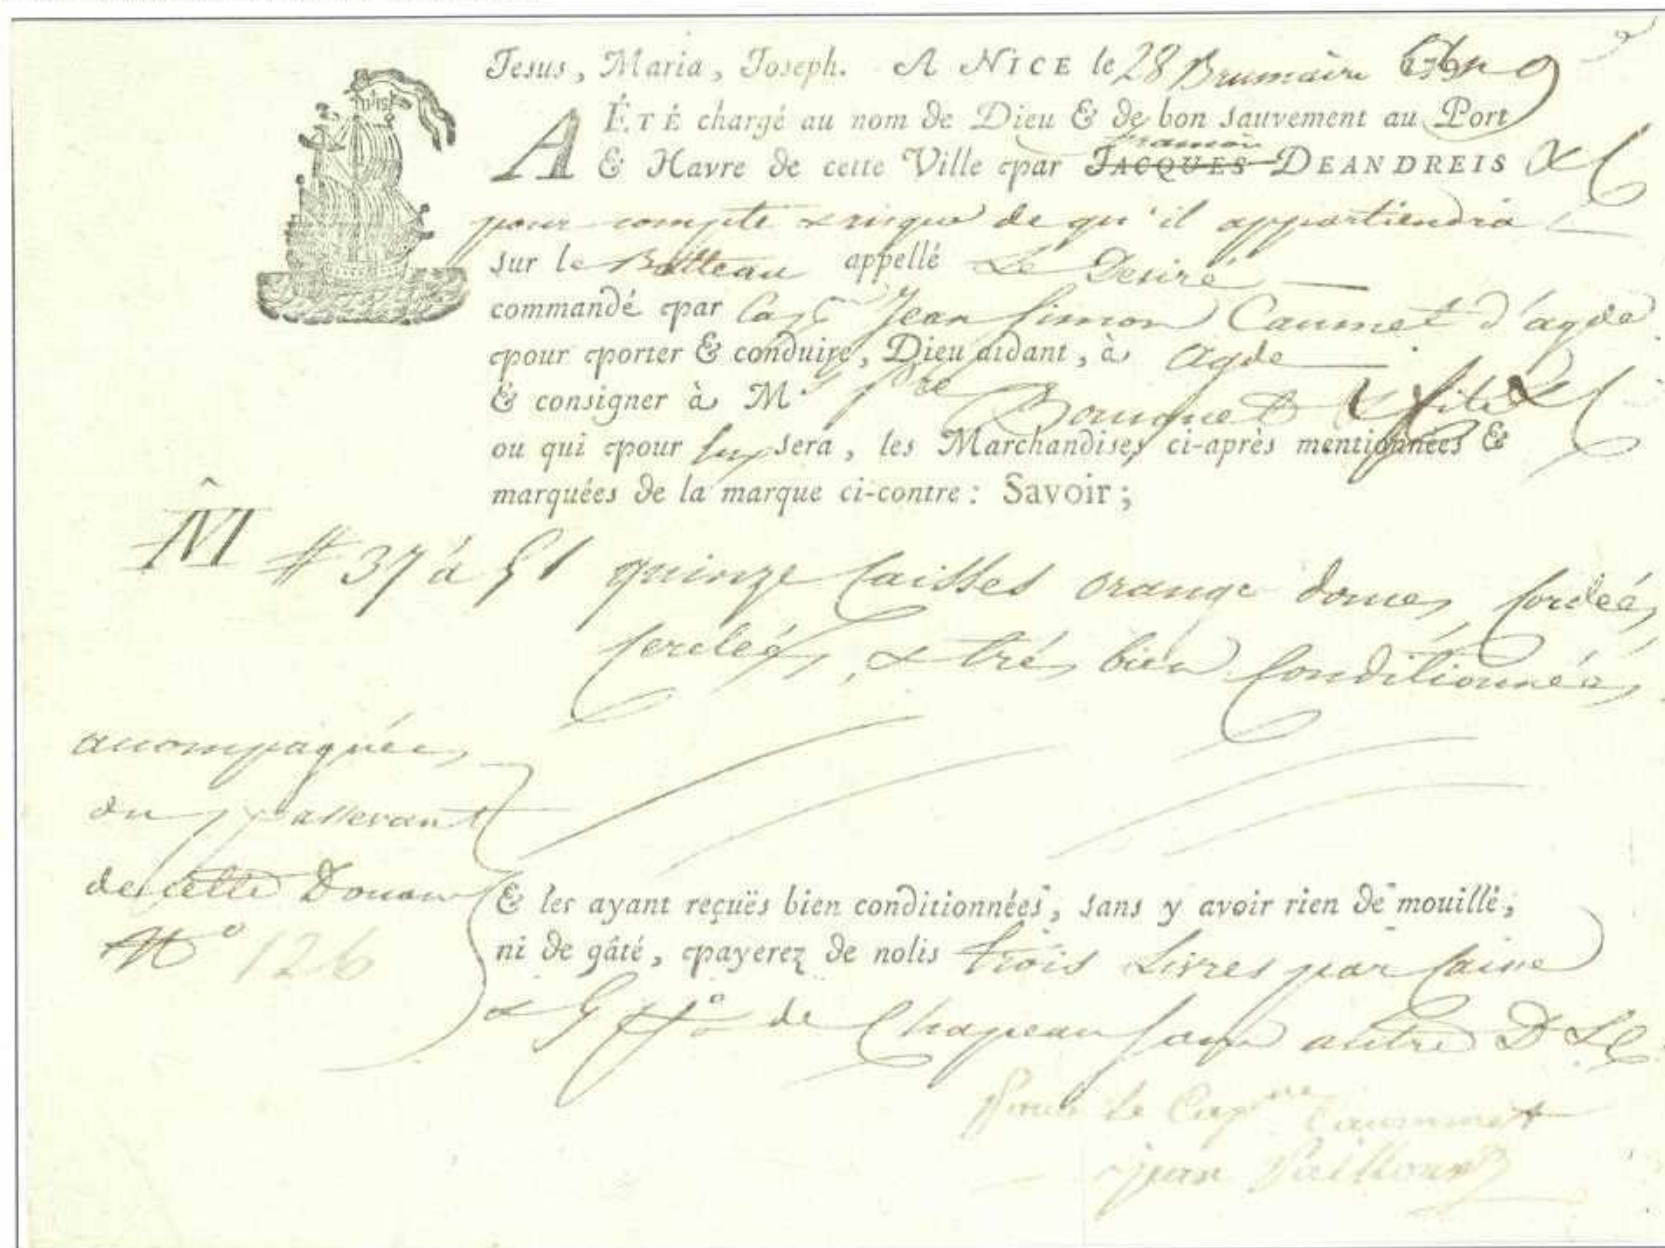 Jesus, Maria, Joseph. A NICE le 28 Brumaire an 9
A ÉTÉ chargé au nom de Dieu & de bon sauvement au Port
francois
& Havre de cette Ville par JACQUES DEANDREIS & C
pour compte & risque de qu'il appartiendra
sur le Batteau appellé Le Desiré
commandé par Cap Jean Simon Caumet d'agde
pour porter & conduire, Dieu aidant, à Agde
& consigner à M. & fils & C
ou qui pour luy sera, les Marchandises ci-après mentionnées &
marquées de la marque ci-contre : Savoir ;
M # 37 à 51 quinze Caisses orange douces, Cordées,
Cerclées, & trés bien Conditionnées
accompagnées
du passavant
de cette Douane
N° 126
& les ayant reçuës bien conditionnées, sans y avoir rien de mouillé,
ni de gâté, payerez de nolis trois Livres par Caisse
& de Chapeau sans autre
Pour le Capne Caummet
jean